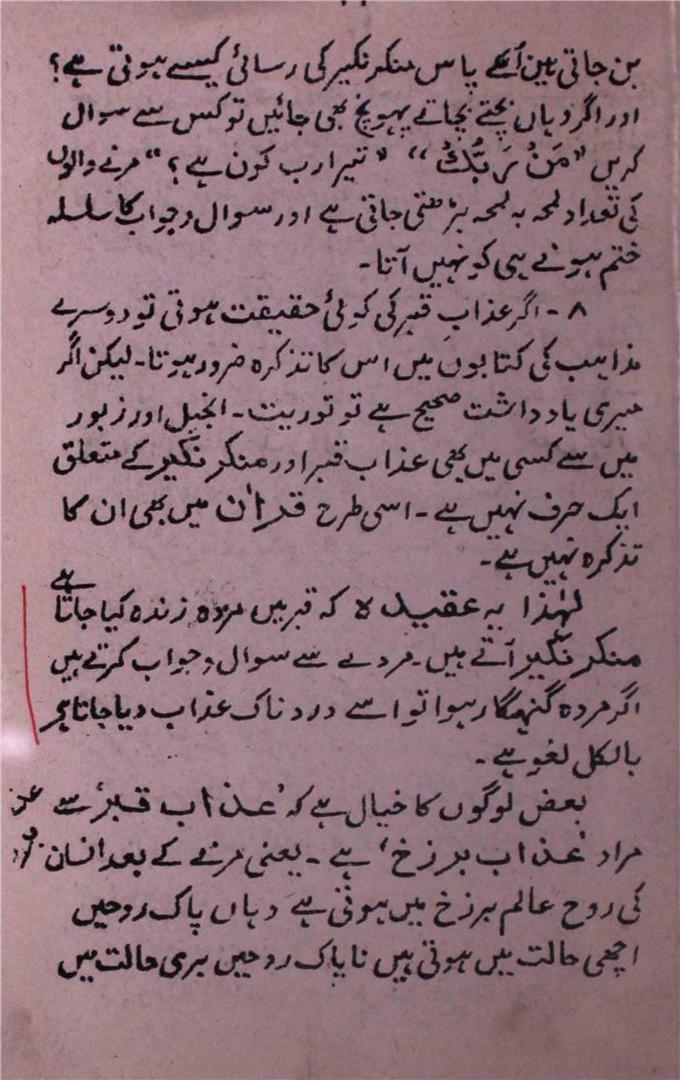 بن جاتی ہیں اُنکے پاس منکر نکیر کی رسائی کیسے ہوتی ہے؟
اور اگر وہاں بچتے بچاتے پہونچ بھی جائیں تو کس سے سوال
کریں "مَنْ رَبُّكَ" "تیرا رب کون ہے؟" مرنے والوں
کی تعداد لمحہ بہ لمحہ بڑھتی جاتی ہے اور سوال و جواب کا سلسلہ
ختم ہونے ہی کو نہیں آتا۔
۸ - اگر عذابِ قبر کی کوئی حقیقت ہوتی تو دوسرے
مذاہب کی کتابوں میں اس کا تذکرہ ضرور ہوتا۔ لیکن اگر
میری یادداشت صحیح ہے تو توریت۔ انجیل اور زبور
میں سے کسی میں بھی عذاب قبر اور منکر نکیر کے متعلق
ایک حرف نہیں ہے۔ اسی طرح قرآن میں بھی ان کا
تذکرہ نہیں ہے۔
لہٰذا یہ عقیدہ کہ قبر میں مردہ زندہ کیا جاتا ہے
منکر نکیر آتے ہیں۔ مردے سے سوال و جواب کرتے ہیں
اگر مردہ گنہگار ہوا تو اسے دردناک عذاب دیا جاتا ہے
بالکل لغو ہے۔
بعض لوگوں کا خیال ہے کہ 'عذاب قبر' سے
مراد 'عذاب برزخ' ہے۔ یعنی مرنے کے بعد انسان
کی روح عالم برزخ میں ہوتی ہے وہاں پاک روحیں
اچھی حالت میں ہوتی ہیں ناپاک روحیں بری حالت میں